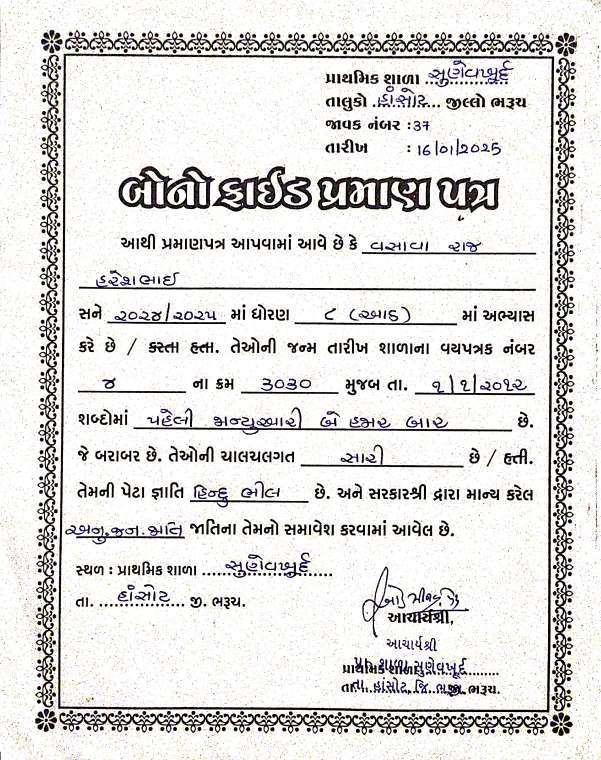 પ્રાથમિક શાળા સુણેવખુર્દ
તાલુકો .હાંસોટ... જીલ્લો ભરૂચ
જાવક નંબર :37
તારીખ : 16/01/2025
બોનોફાઈડ પ્રમાણ પત્ર
આથી પ્રમાણપત્ર આપવામાં આવે છે કે વસાવા રાજ
હરેશભાઈ
સને ૨૦૨૪/૨૦૨૫ માં ધોરણ ૮ (આઠ) માં અભ્યાસ
કરે છે / કરતા હતા. તેઓની જન્મ તારીખ શાળાના વયપત્રક નંબર
૪ ના ક્રમ ૩૦૩૦ મુજબ તા. ૧/૧/૨૦૧૨
શબ્દોમાં પહેલી જાન્યુઆરી બે હજાર બાર છે.
જે બરાબર છે. તેઓની ચાલચલગત સારી છે / હતી.
તેમની પેટા જ્ઞાતિ હિન્દુ ભીલ છે. અને સરકારશ્રી દ્રારા માન્ય કરેલ
અનુ.જન.જાતિ જાતિના તેમનો સમાવેશ કરવામાં આવેલ છે.
સ્થળ : પ્રાથમિક શાળા ......સુણેવખુર્દ......
તા. ...હાંસોટ..... જી. ભરૂચ.
આચાર્યશ્રી,
આચાર્યશ્રી
પ્રાથમિક શાળા સુણેવખુર્દ
તા. હાંસોટ, જિ. ભરૂચ.